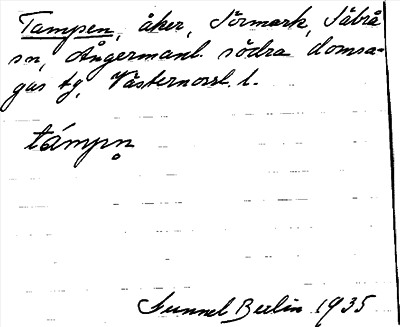 Tampen, åker, Sörmark, Säbrå
sn, Ångermanl. södra domsa-
gas tg, Västernorrl. l.
támpn̥
Gunnel Berlin 1935